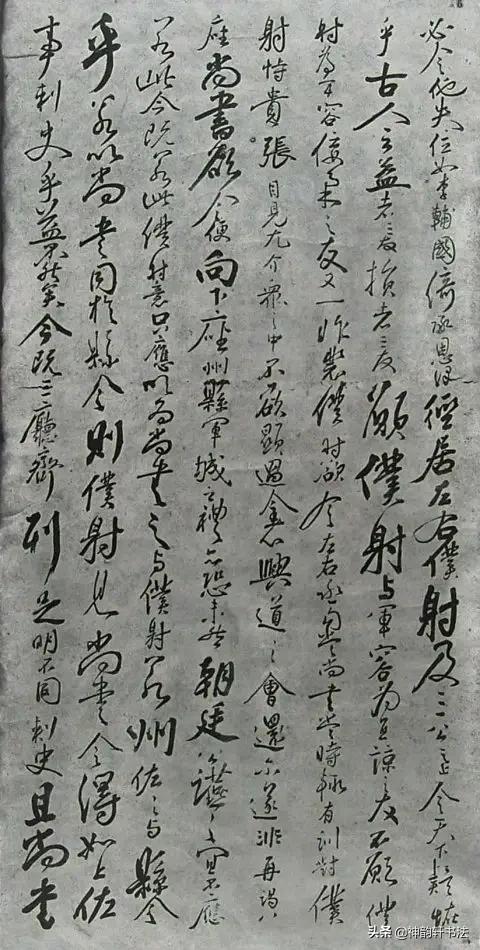 必令他失位如李輔國倚承恩澤徑居左右僕射及三公之上令天下疑怪
乎古人云益者三友損者三友願僕射与軍容為直諒之友不願僕
射為軍容佞柔之友又一昨裴僕射欲令左右丞勾當尚書當時輒有訓對僕
射恃貴張目見尤介眾之中不欲顯過今者興道之會還尓遂非再猲八
座尚書欲令便向下座州縣軍城之禮亦恐未然朝廷公讌之宜不應
若此今既若此僕射意只應以為尚書之与僕射若州佐之与縣令
乎若以尚書同於縣令則僕射見尚書令得如上佐
事刺史乎益不然矣今既三廳齊列足明不同刺史且尚書
头条 @神韵轩书法